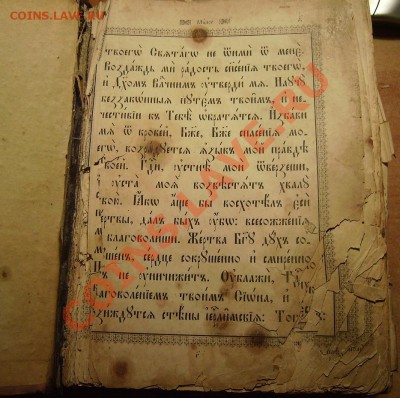 COINS.LAVE.RU
твоегѡ̀ Свѧта́гѡ не ѿимѝ ѿ менѐ.
Возда́ждь мѝ ра́дость сп҃се́нїѧ твоегѡ̀,
и҆ Дх҃омъ Влⷣчнимъ ᲂу҆твердѝ мѧ̀. Наꙋчꙋ̀
беззакѡ́нныѧ пꙋте́мъ твои̑мъ, и҆ не-
чести́вїи къ Тебѣ̀ ѡ҆братѧ́тсѧ. И҆зба́ви
мѧ̀ ѿ крове́й, Бж҃е, Бж҃е спасе́нїѧ мо-
егѡ̀, возра́дꙋетсѧ ѧ҆зы́къ мо́й пра́вдѣ
твое́й. Гдⷭ҇и, ᲂу҆стнѣ̀ моѝ ѿве́рзеши,
и҆ ᲂу҆ста̀ моѧ̑ возвѣстѧ́тъ хвалꙋ̀
твою̀. Ꙗ҆́кѡ а҆́ще бы восхотѣ́лъ є҆сѝ
же́ртвы, да́лъ бы́хъ ᲂу҆́бѡ: всесожже́нїѧ
благоволи́ши. Же́ртва Бг҃ꙋ дꙋ́хъ со-
се́рдце сокрꙋше́нно и҆ смире́нно
не ᲂу҆ничижи́тъ. Оу҆блажѝ,
благоволе́нїемъ твои́мъ Сїѡ́на, и҆
стѣ́ны і҆ерⷭ҇ли́мскїѧ: Тог